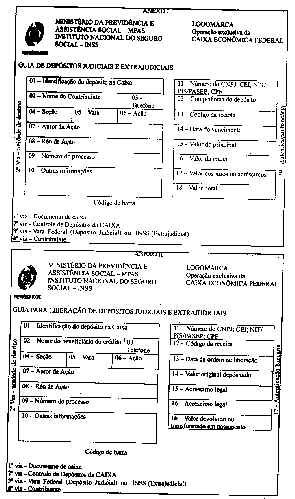 ANEXO I
MINISTÉRIO DA PREVIDÊNCIA E
ASSISTÊNCIA SOCIAL - MPAS
INSTITUTO NACIONAL DO SEGURO
SOCIAL - INSS
LOGOMARCA
Operação exclusiva da
CAIXA ECONÔMICA FEDERAL
GUIA DE DEPÓSITOS JUDICIAIS E EXTRAJUDICIAIS
01 - Identificação do depósito na Caixa
02 - Nome do Contribuinte
03 - Telefone
04 - Seção
05 Vara
06 - Ação
07 - Autor da Ação
08 - Réu da Ação
09 Número do processo
10 Outras informações
11 Número do CNPJ, CEI, NIT/
PIS/PASEP, CPF
12 Competência do depósito
13 Código da receita
14 - Data do vencimento
15 - Valor do principal
16 Valor da multa
17 - Valor dos juros ou acréscimos
18 Valor total
Código de barra
1ª via - Documento de caixa
2ª via - Controle de Depósitos da CAIXA
3ª via - Vara Federal (Depósito Judicial) ou INSS (Extrajudicial)
4ª via - Contribuinte
ANEXO II
MINISTÉRIO DA PREVIDÊNCIA E
ASSISTÊNCIA SOCIAL - MPAS
INSTITUTO NACIONAL DO SEGURO
SOCIAL - INSS
LOGOMARCA
Operação exclusiva da
CAIXA ECONÔMICA FEDERAL
GUIA PARA LIBERAÇÃO DE DEPÓSITOS JUDICIAIS E EXTRAJUDICIAIS
01 Identificação do depósito na Caixa
02 Nome do beneficiário do crédito
03 Telefone
04 - Seção
05 Vara
06 - Ação
07 - Autor da Ação
08 - Réu da Ação
09 - Número do processo
10 - Outras informações
11 Número do CNPJ, CEI, NIT/
PIS/PASEP, CPF
12 - Código da receita
13 - Data da ordem de liberação
14 - Valor original depositado
15 - Acréscimo legal
16 Acréscimo legal
Código de barra
1ª via - Documento de caixa
2ª via - Controle de Depósitos da CAIXA
3ª via - Vara Federal (Depósito Judicial) ou INSS (Extrajudicial)
4ª via - Contribuinte